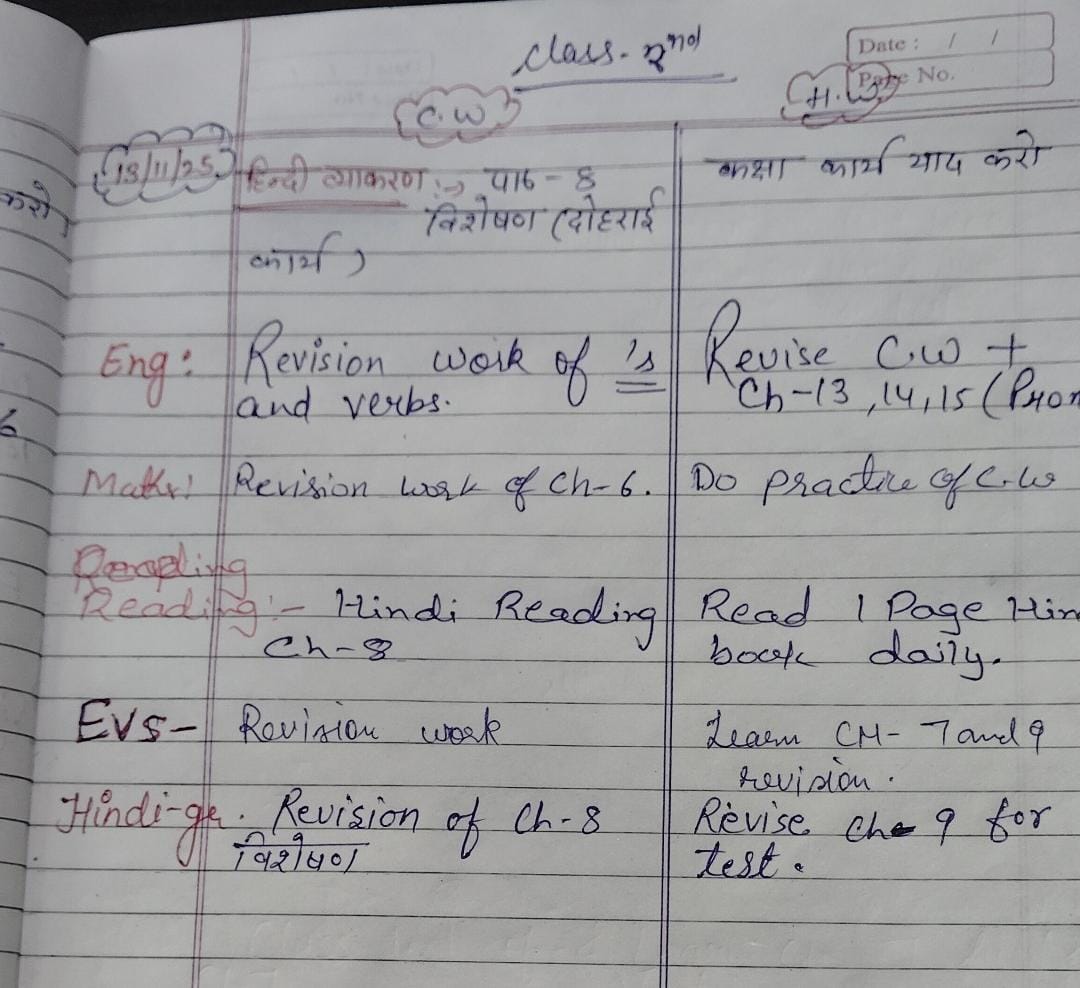 Class - 2nd
Date : / /
Page No.
C.W
H.W
13/11/25
हिन्दी व्याकरण :-> पाठ - 8
कक्षा कार्य याद करो
विशेषण (दोहराई
कार्य )
करो
Eng: Revision work of 's
and verbs.
Revise C.W +
Ch-13, 14, 15 (Pron
Maths: Revision work of Ch-6.
Do practice of C.W
Reading :- Hindi Reading
Ch-8
Read 1 Page Hin
book daily.
EVS - Revision work
Learn CH- 7 and 9
revision.
Hindi-gr. Revision of Ch-8
विशेषण
Revise ch- 9 for
test.